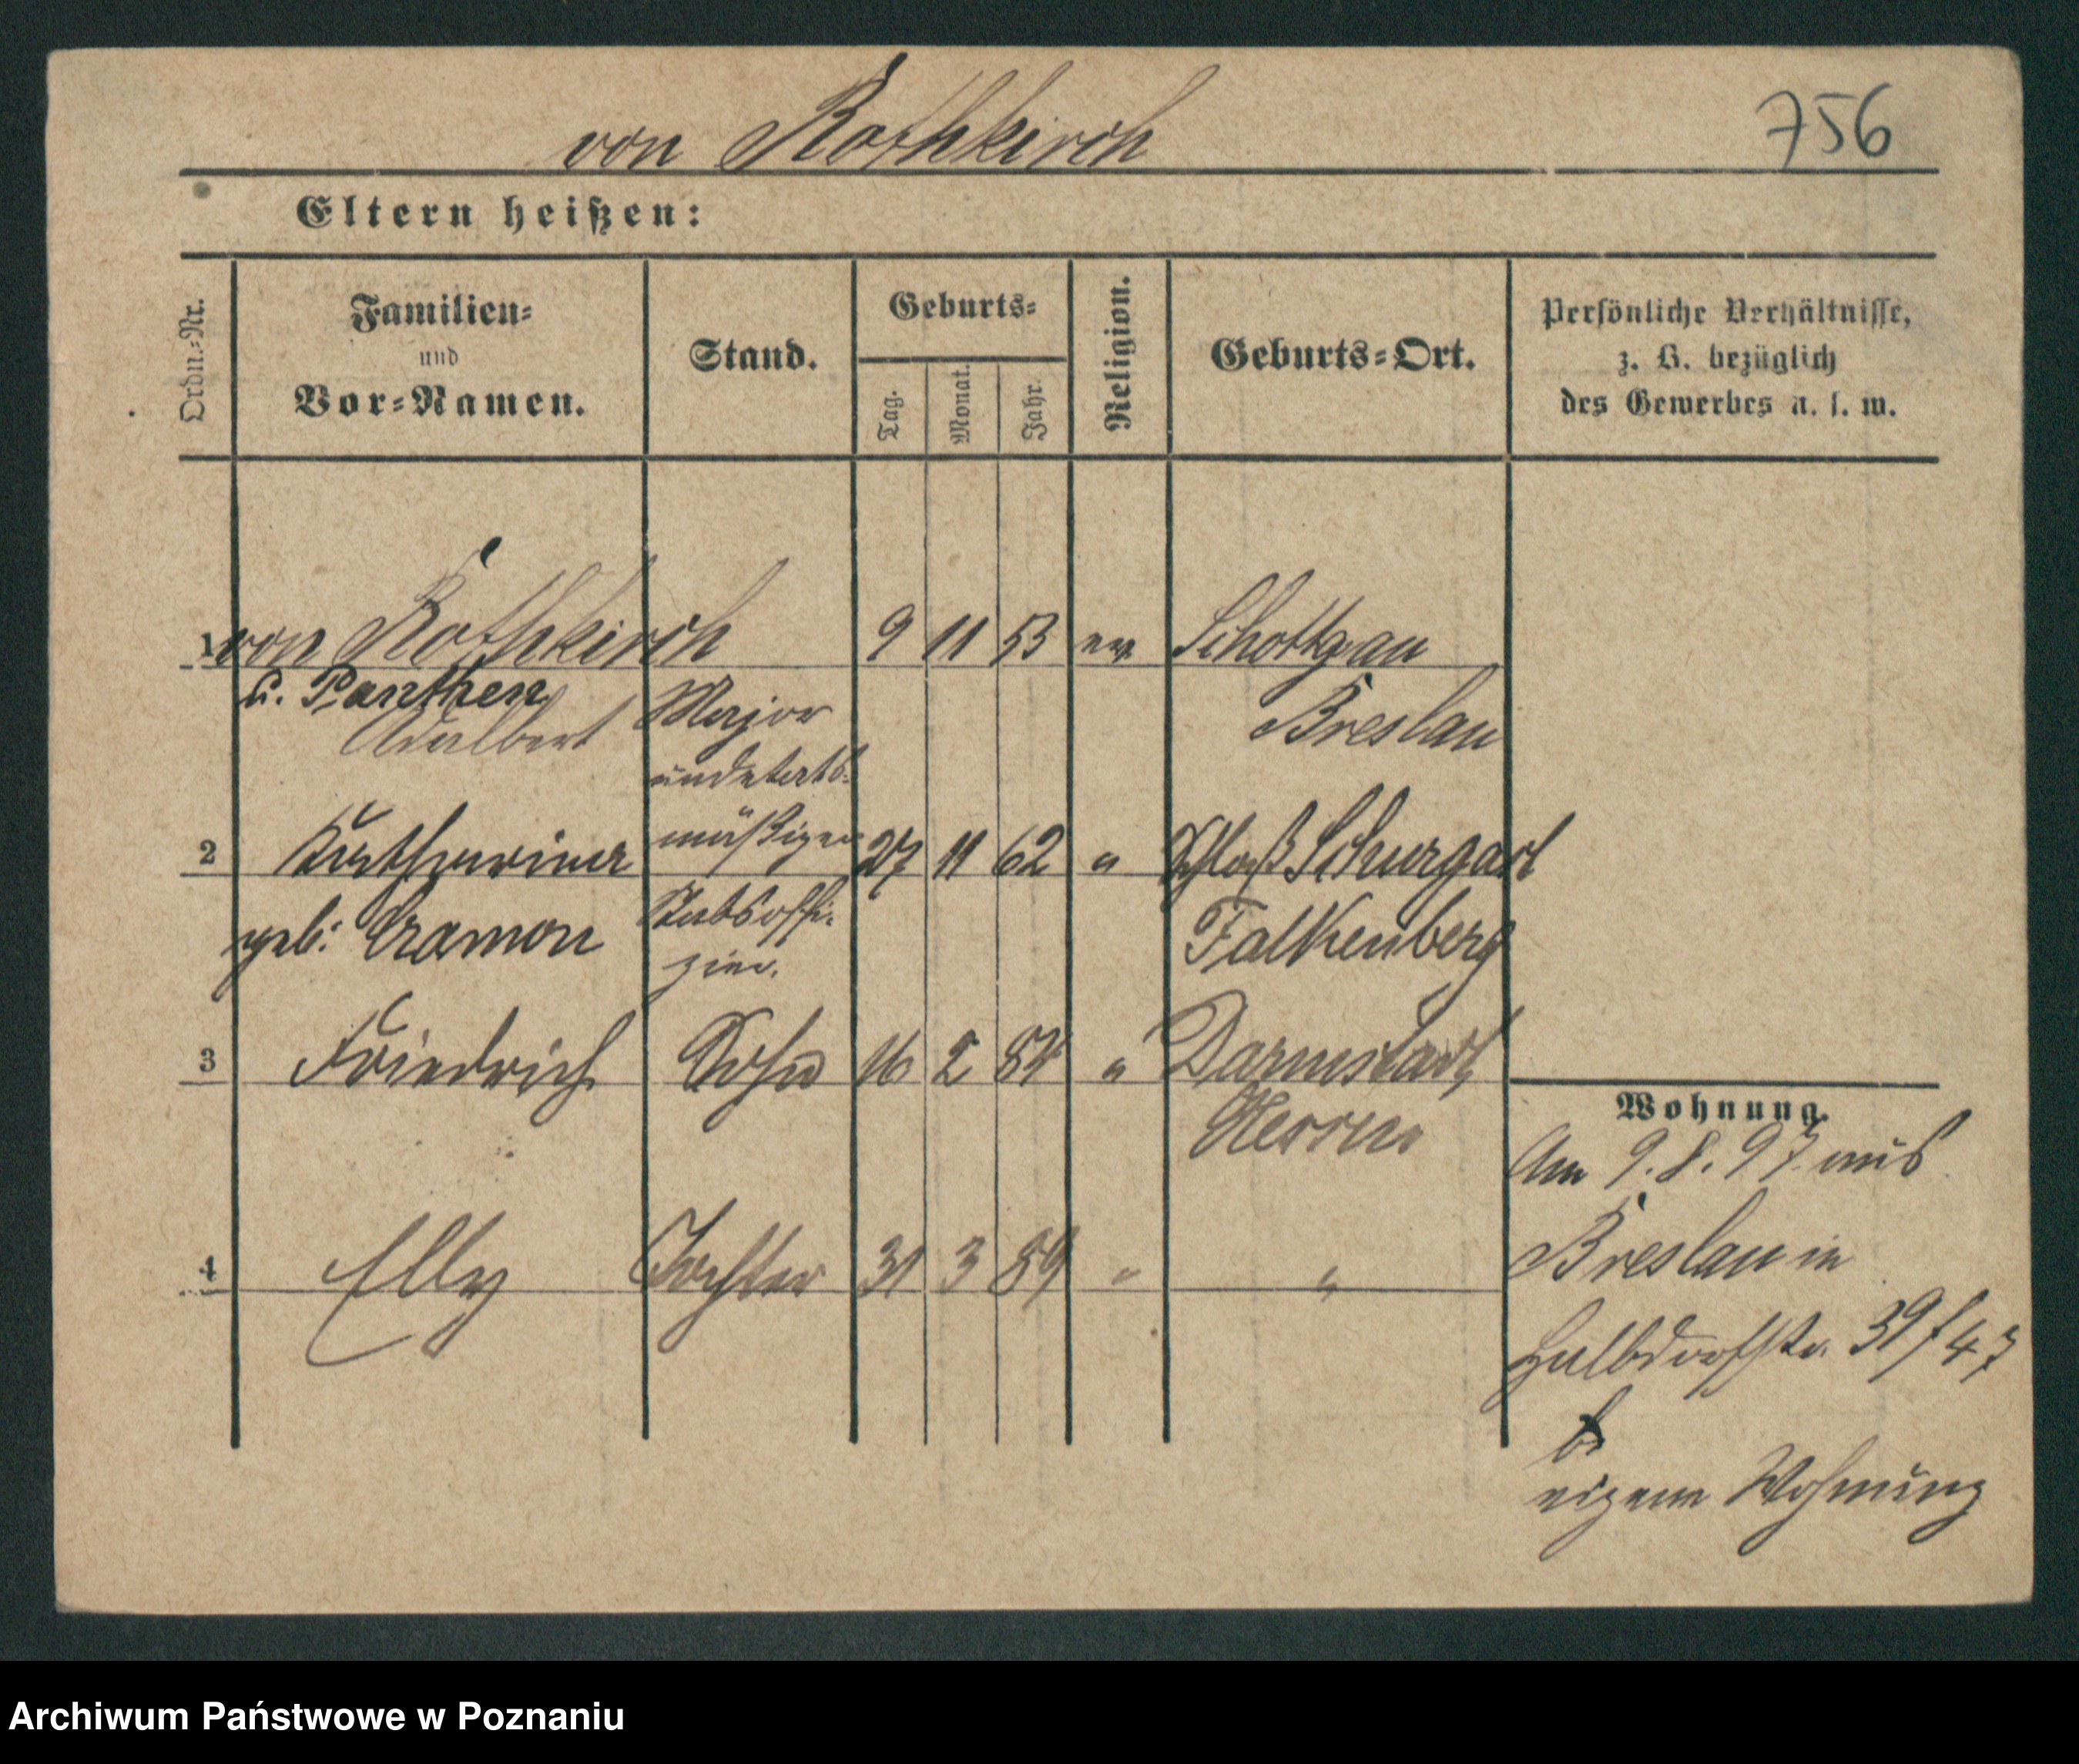 von Rothkirch
756
Eltern heißen:
Ordn.-Nr.
Familien-
und
Vor-Namen.
Stand.
Geburts-
Tag.
Monat.
Jahr.
Religion.
Geburts-Ort.
Persönliche Verhältnisse,
z. B. bezüglich
des Gewerbes u. s. w.
1 von Rothkirch 9 11 53 ev. Schottgau
u. Panthen
Adalbert Major Breslau
und etats-
2 Katharina mäßiger 27 11 62 " Schloß Schurgast
geb: Cramon Stabsoffi- Falkenberg
zier.
3 Friedrich Sohn 16 2 84 " Darmstadt,
Hessen
4 Elly Tochter 31 3 89 " "
Wohnung.
Am 9.8.97 aus
Breslau in
Halbdorfstr. 39/47
eigene Wohnung
Archiwum Państwowe w Poznaniu